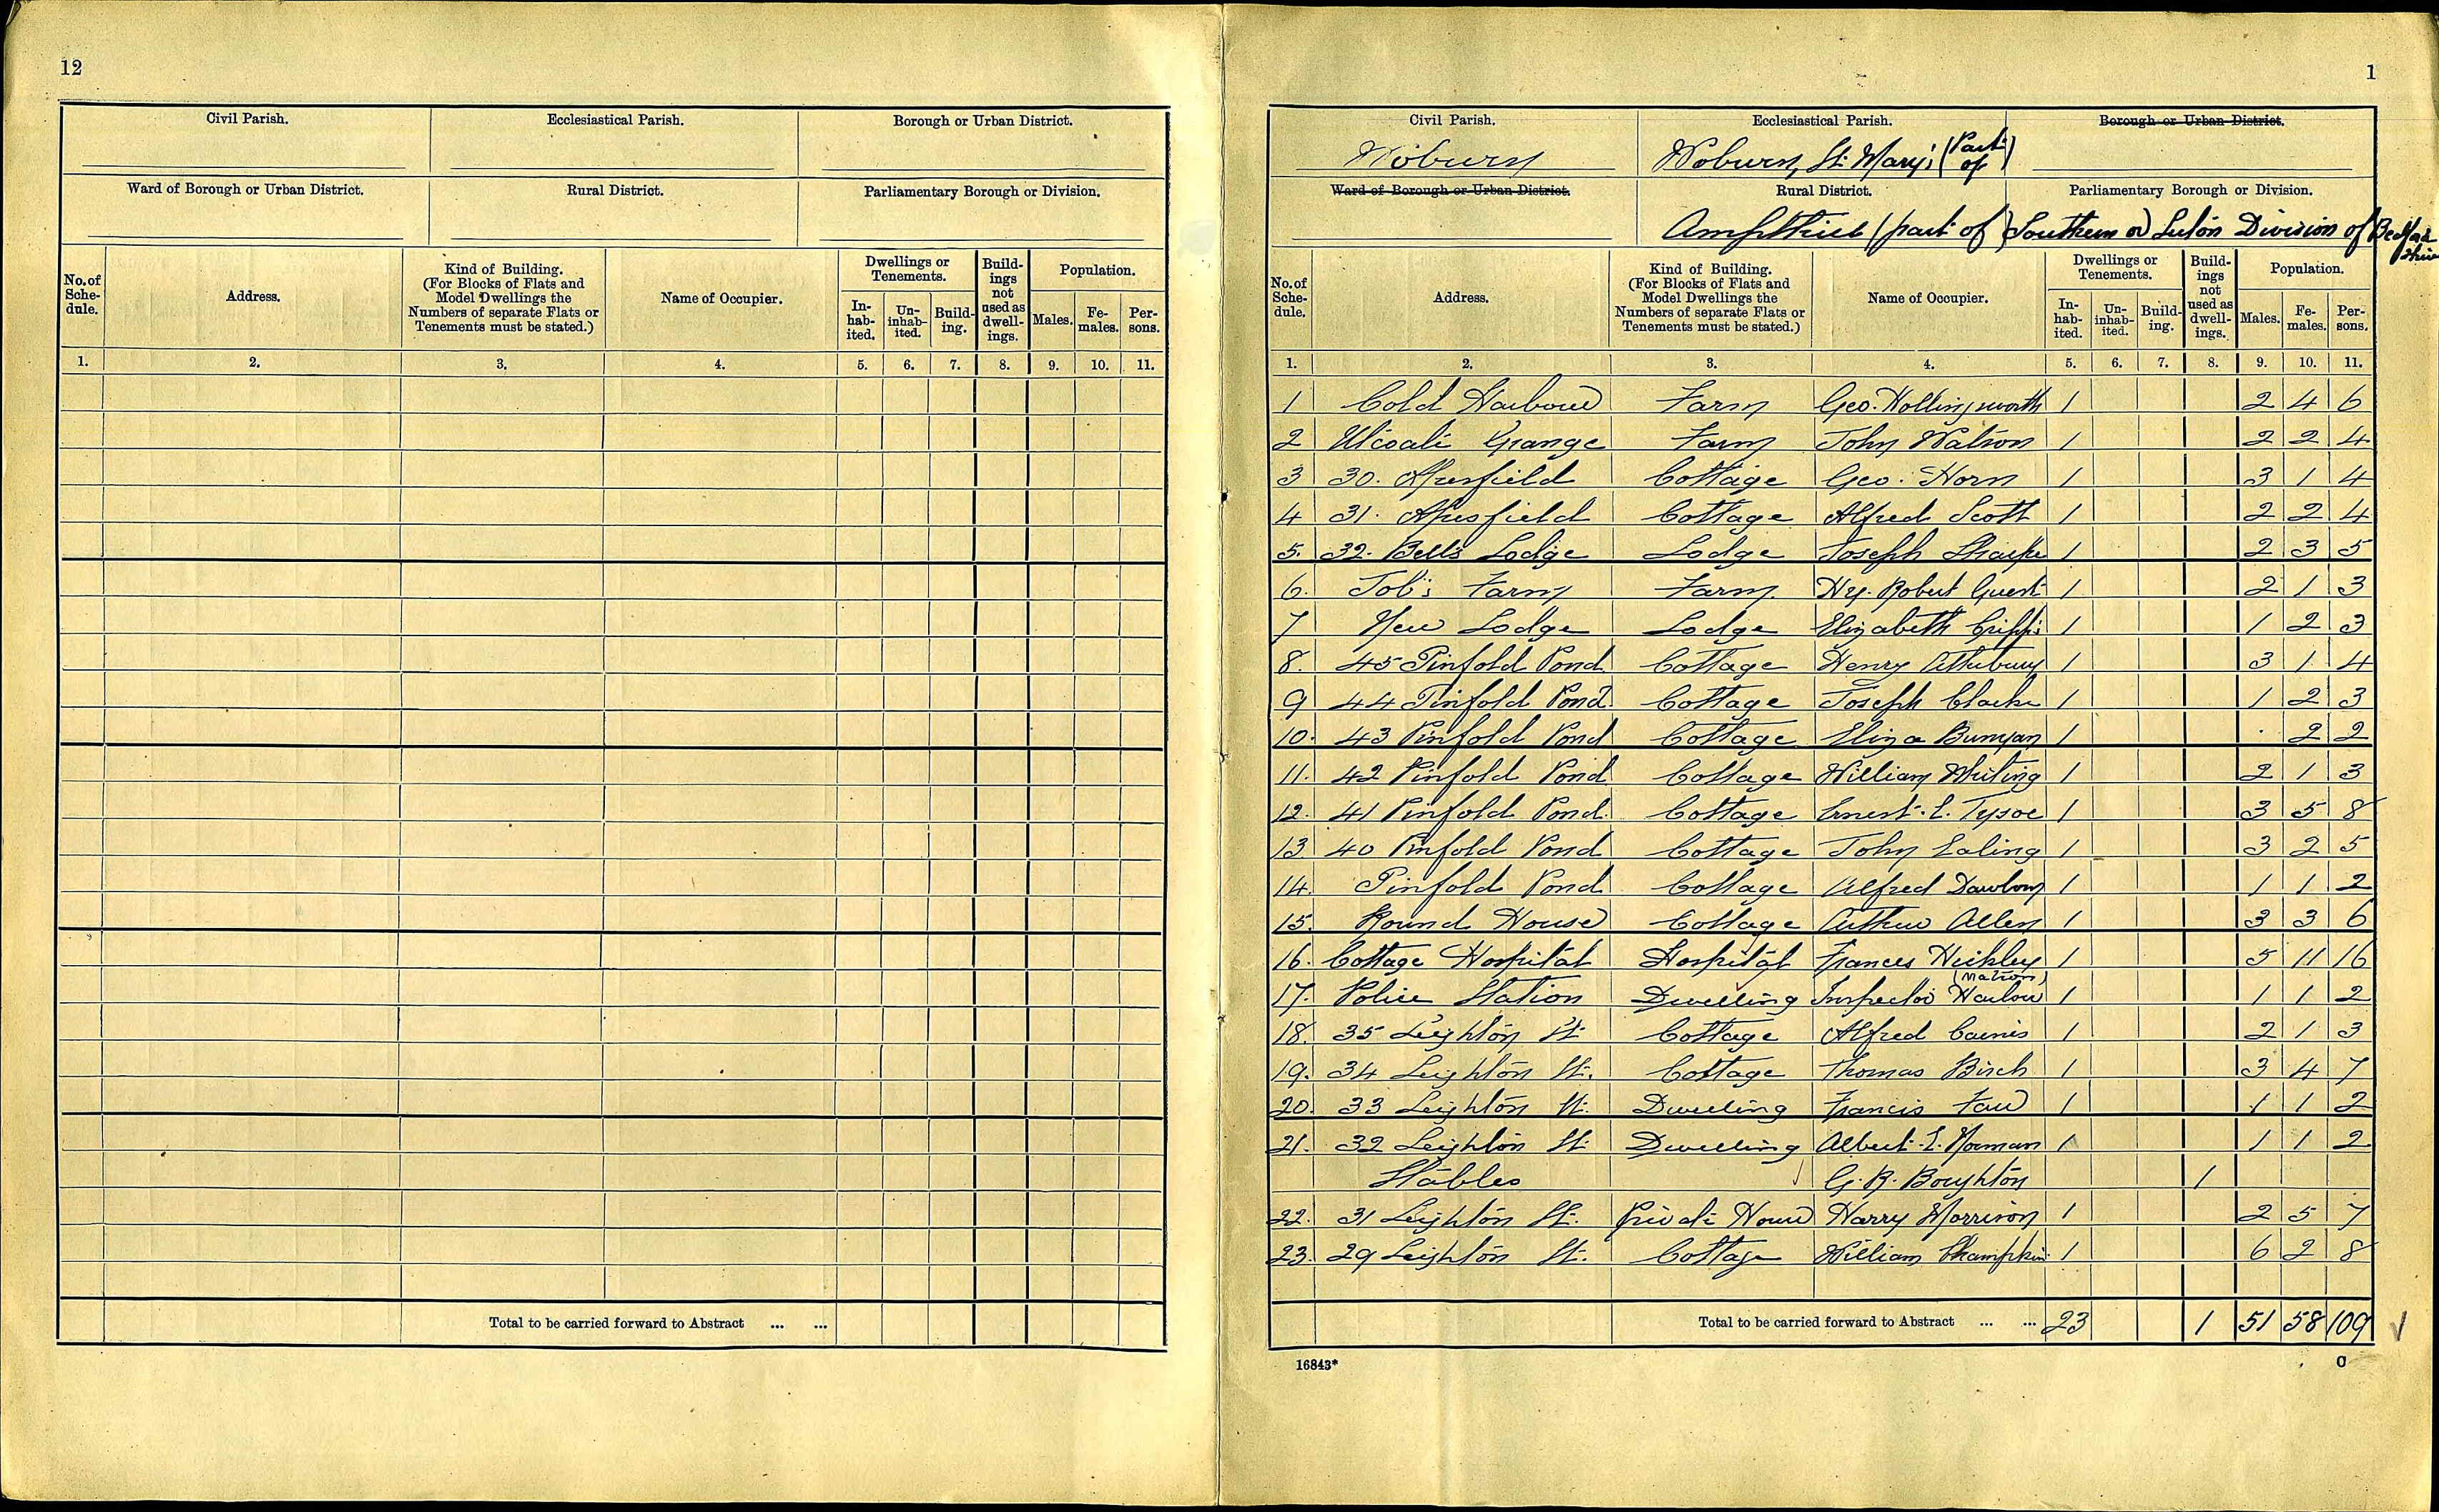 12
Civil Parish. Ecclesiastical Parish. Borough or Urban District.
Ward of Borough or Urban District. Rural District. Parliamentary Borough or Division.
No. of Schedule. Address. Kind of Building. (For Blocks of Flats and Model Dwellings the Numbers of separate Flats or Tenements must be stated.) Name of Occupier. Dwellings or Tenements. Inhabited. Uninhabited. Building. Buildings not used as dwellings. Population. Males. Females. Persons.
1. 2. 3. 4. 5. 6. 7. 8. 9. 10. 11.
Total to be carried forward to Abstract ... ...
1
Civil Parish. Ecclesiastical Parish. Borough or Urban District.
Woburn Woburn, St. Mary's (Part of)
Ward of Borough or Urban District. Rural District. Parliamentary Borough or Division.
Ampthill (part of) Southern or Luton Division of Bedfordshire
No. of Schedule. Address. Kind of Building. (For Blocks of Flats and Model Dwellings the Numbers of separate Flats or Tenements must be stated.) Name of Occupier. Dwellings or Tenements. Inhabited. Uninhabited. Building. Buildings not used as dwellings. Population. Males. Females. Persons.
1. 2. 3. 4. 5. 6. 7. 8. 9. 10. 11.
1 Cold Harbour Farm Geo. Hollingsworth 1 2 4 6
2 Grange Farm John Watson 1 2 2 4
3 30. Cottage Geo. Horn 1 3 1 4
4 31. Cottage Alfred Scott 1 2 2 4
5. 32. Bell's Lodge Lodge Joseph Sharpe 1 2 3 5
6. Job's Farm Farm. Hy. Robert Guest 1 2 1 3
7 New Lodge Lodge Elizabeth Cripps 1 1 2 3
8. 45 Pinfold Pond Cottage Henry Atterbury 1 3 1 4
9 44 Pinfold Pond Cottage Joseph Clarke 1 1 2 3
10. 43 Pinfold Pond Cottage Eliza Bunyan 1 . 2 2
11. 42 Pinfold Pond Cottage William Whiting 1 2 1 3
12. 41 Pinfold Pond. Cottage Ernest. E. Tysoe 1 3 5 8
13. 40 Pinfold Pond Cottage John Ealing 1 3 2 5
14. Pinfold Pond Cottage Alfred 1 1 1 2
15. Round House Cottage Arthur Allen 1 3 3 6
16. Cottage Hospital Hospital Frances Hickley (Matron) 1 5 11 16
17. Police Station Dwelling Inspector Harlow 1 1 1 2
18. 35 Leighton St Cottage Alfred 1 2 1 3
19. 34 Leighton St. Cottage Thomas Birch 1 3 4 7
20. 33 Leighton St. Dwelling Francis 1 1 1 2
21. 32 Leighton St. Dwelling Albert. E. Norman 1 1 1 2
Stables G. R. Boughton 1
22. 31 Leighton St. Private House Harry Morrison 1 2 5 7
23. 29 Leighton St. Cottage William Champkin 1 6 2 8
Total to be carried forward to Abstract ... ... 23 1 51 58 109
16843* C